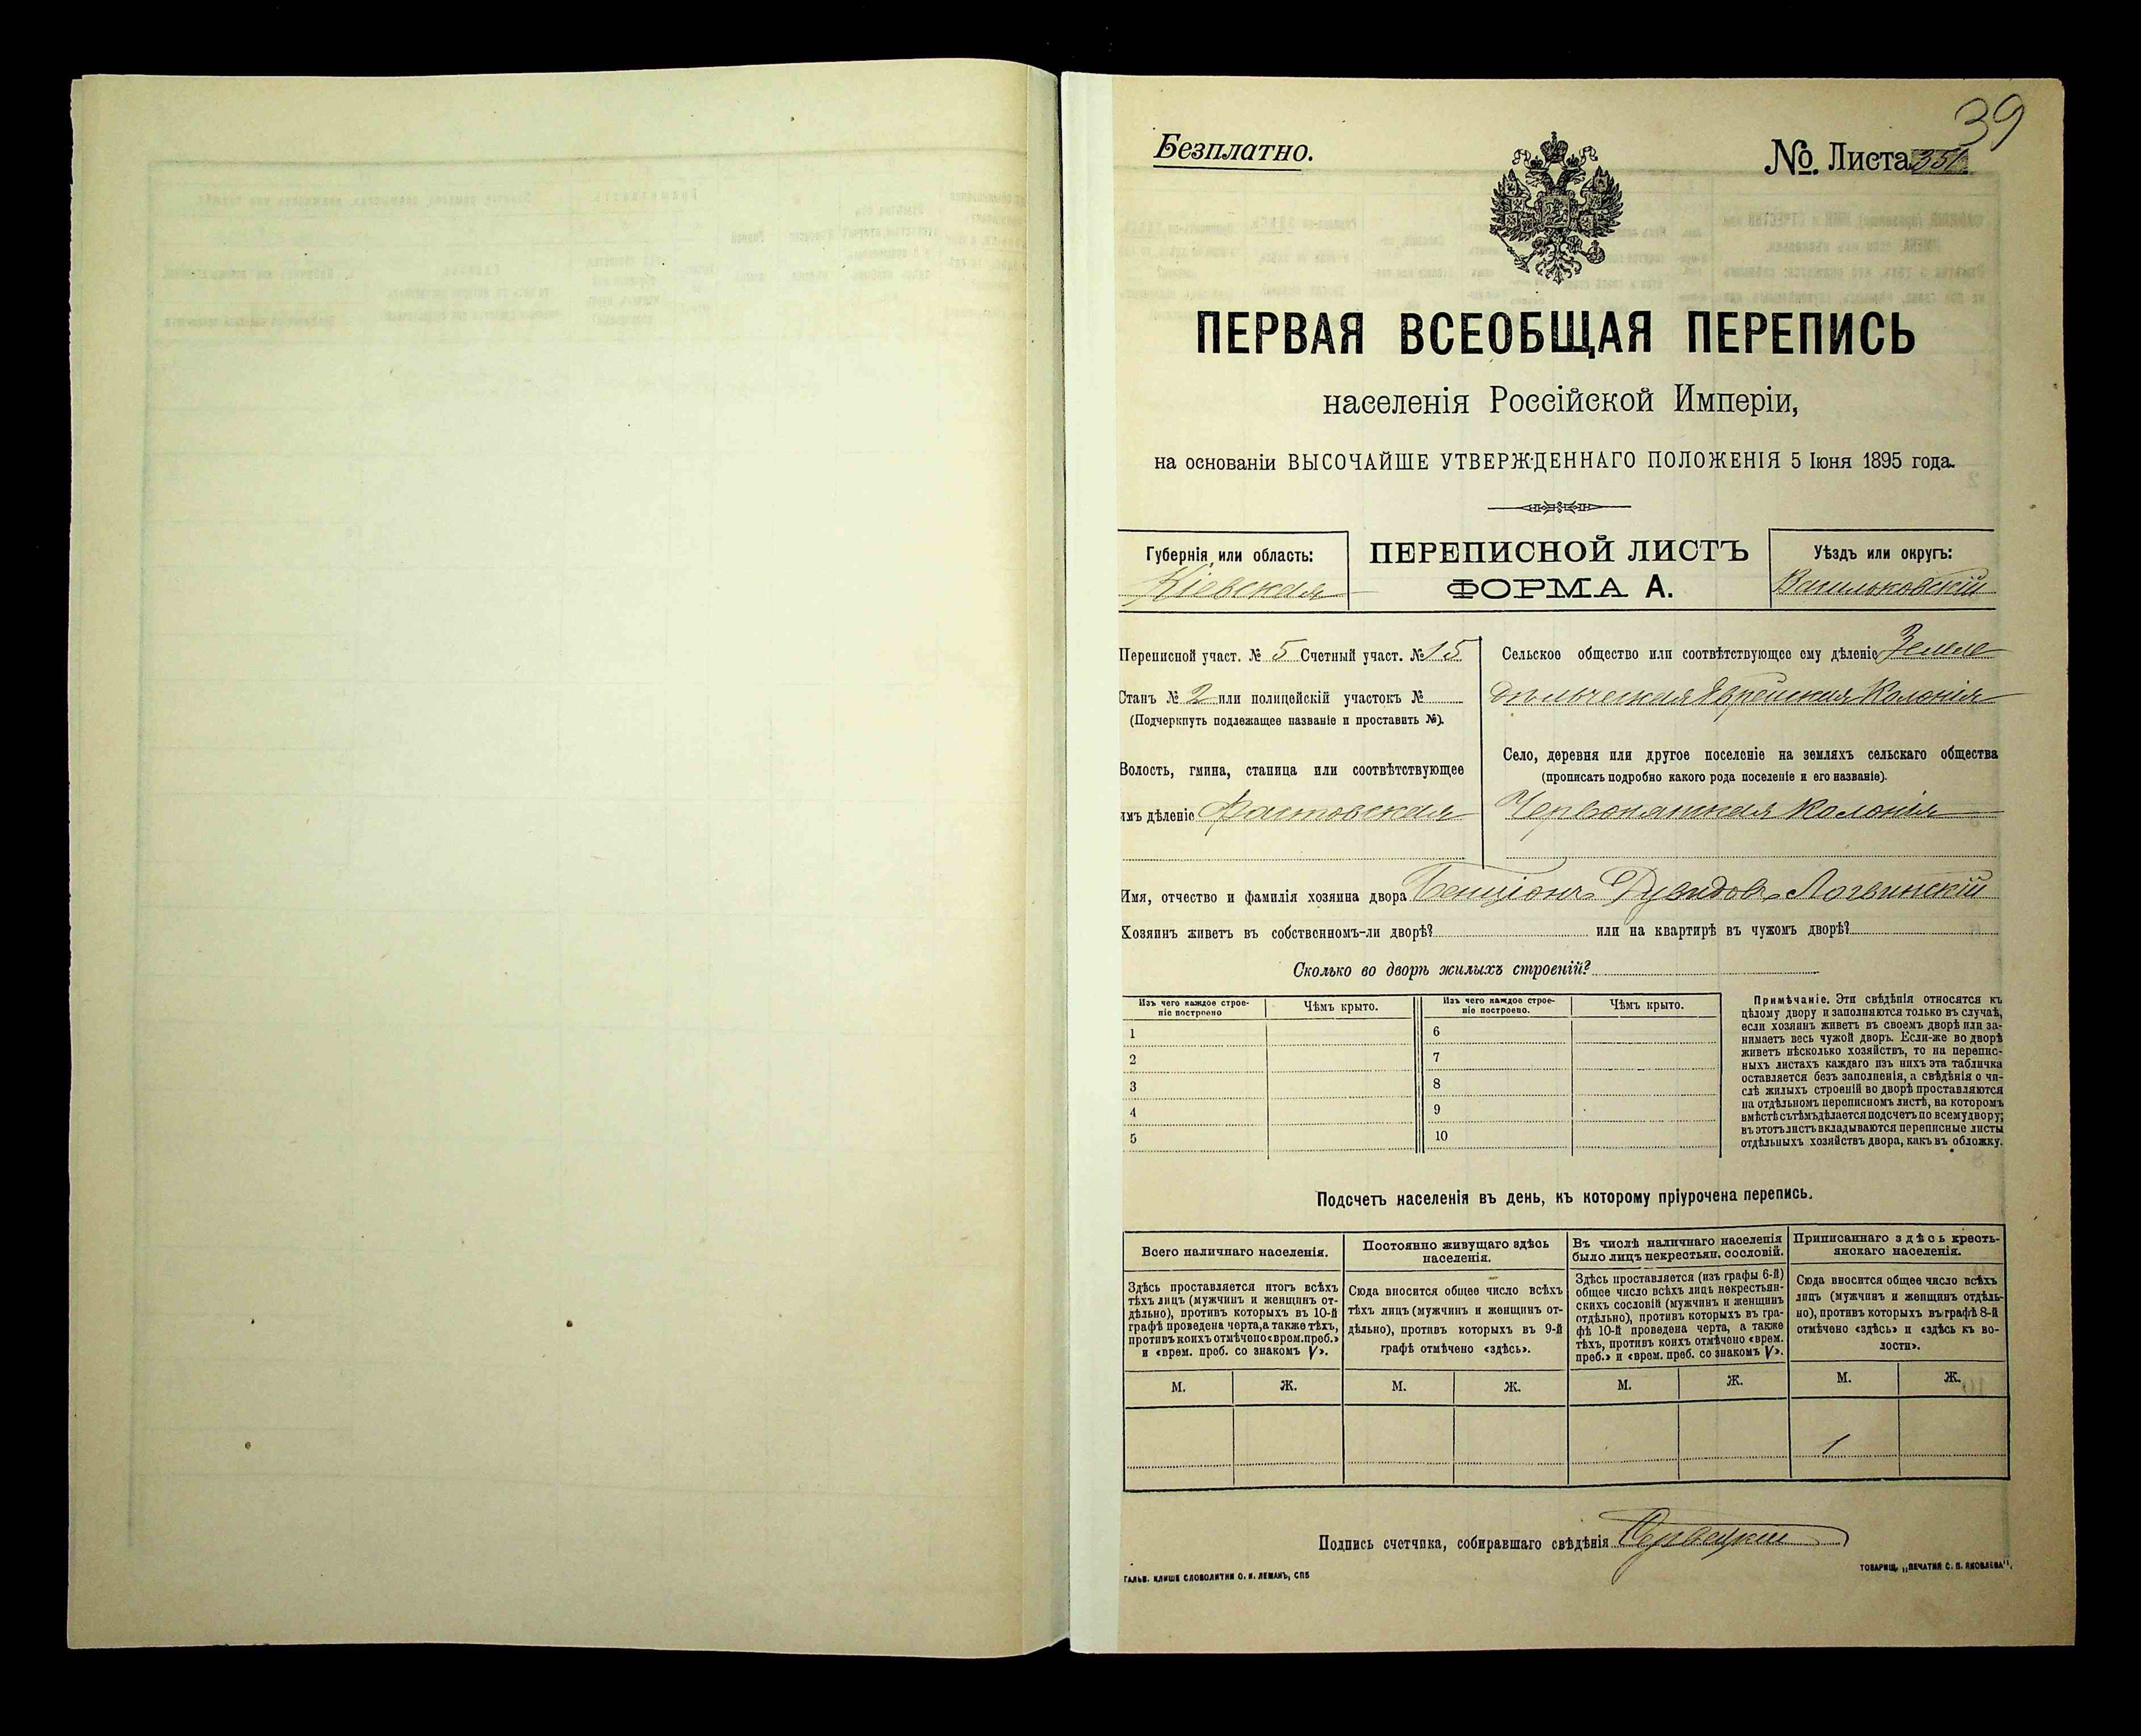 39
Безплатно.
№ Листа 351
ПЕРВАЯ ВСЕОБЩАЯ ПЕРЕПИСЬ
населенія Россійской Имперіи,
на основаніи ВЫСОЧАЙШЕ УТВЕРЖДЕННАГО ПОЛОЖЕНІЯ 5 Іюня 1895 года.
Губернія или область:
Кіевская
ПЕРЕПИСНОЙ ЛИСТЪ
ФОРМА А.
Уѣздъ или округъ:
Васильковскій
Переписной участ. № 5 Счетный участ. № 15
Станъ № 2 или полицейскій участокъ №
(Подчеркнуть подлежащее названіе и проставить №).
Волость, гмина, станица или соотвѣтствующее
имъ дѣленіе Фастовская
Сельское общество или соотвѣтствующее ему дѣленіе Земле
дѣльческая Еврейская Колонія
Село, деревня или другое поселеніе на земляхъ сельскаго общества
(прописать подробно какого рода поселеніе и его названіе).
Червонянская Колонія
Имя, отчество и фамилія хозяина двора Бенціонъ Дувидовъ Логвинскій
Хозяинъ живетъ въ собственномъ-ли дворѣ? или на квартирѣ въ чужомъ дворѣ?
Сколько во дворѣ жилыхъ строеній?
Изъ чего каждое строе-
ніе построено
Чѣмъ крыто.
Изъ чего каждое строе-
ніе построено.
Чѣмъ крыто.
1
2
3
4
5
6
7
8
9
10
Примѣчаніе. Эти свѣдѣнія относятся къ
цѣлому двору и заполняются только въ случаѣ,
если хозяинъ живетъ въ своемъ дворѣ или за-
нимаетъ весь чужой дворъ. Если-же во дворѣ
живетъ нѣсколько хозяйствъ, то на перепис-
ныхъ листахъ каждаго изъ нихъ эта табличка
оставляется безъ заполненія, а свѣдѣнія о чи-
слѣ жилыхъ строеній во дворѣ проставляются
на отдѣльномъ переписномъ листѣ, на которомъ
вмѣстѣ съ тѣмъ дѣлается подсчетъ по всему двору;
въ этотъ листъ вкладываются переписные листы
отдѣльныхъ хозяйствъ двора, какъ въ обложку.
Подсчетъ населенія въ день, къ которому пріурочена перепись.
Всего наличнаго населенія.
Здѣсь проставляется итогъ всѣхъ
тѣхъ лицъ (мужчинъ и женщинъ от-
дѣльно), противъ которыхъ въ 10-й
графѣ проведена черта, а также тѣхъ,
противъ коихъ отмѣчено «врем. преб.»
и «врем. преб. со знакомъ V».
М. Ж.
Постоянно живущаго здѣсь
населенія.
Сюда вносится общее число всѣхъ
тѣхъ лицъ (мужчинъ и женщинъ от-
дѣльно), противъ которыхъ въ 9-й
графѣ отмѣчено «здѣсь».
М. Ж.
Въ числѣ наличнаго населенія
было лицъ некрестьян. сословій.
Здѣсь проставляется (изъ графы 6-й)
общее число всѣхъ лицъ некрестьян-
скихъ сословій (мужчинъ и женщинъ
отдѣльно), противъ которыхъ въ гра-
фѣ 10-й проведена черта, а также
тѣхъ, противъ коихъ отмѣчено «врем.
преб.» и «врем. преб. со знакомъ V».
М. Ж.
Приписаннаго здѣсь кресть-
янскаго населенія.
Сюда вносится общее число всѣхъ
лицъ (мужчинъ и женщинъ отдѣль-
но), противъ которыхъ въ графѣ 8-й
отмѣчено «здѣсь» и «здѣсь къ во-
лости».
М. Ж.
1
Подпись счетчика, собиравшаго свѣдѣнія
ГАЛЬВ. КЛИШЕ СЛОВОЛИТНИ О. И. ЛЕМАНЪ, СПБ
ТОВАРИЩ. „ПЕЧАТНЯ С. П. ЯКОВЛЕВА“.